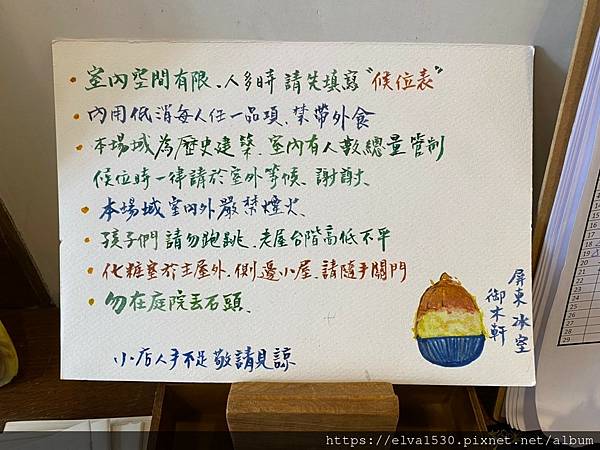 • 室內空間有限、人多時 請先填寫"候位表"
• 內用低消每人任一品項、禁帶外食
• 本場域為歷史建築、室內有人數總量管制
候位時一律請於室外等候、謝謝大
• 本場域室內外嚴禁煙火、
• 孩子們請勿跑跳、老屋台階高低不平
• 化粧室於主屋外、側邊小屋、請隨手關門
• 勿在庭院丟石頭、
小店人手不足敬請見諒
屏東冰室
御木軒
19
20
21
22
23
24
25
26
27
28
29
https://elva1530.pixnet.net/album